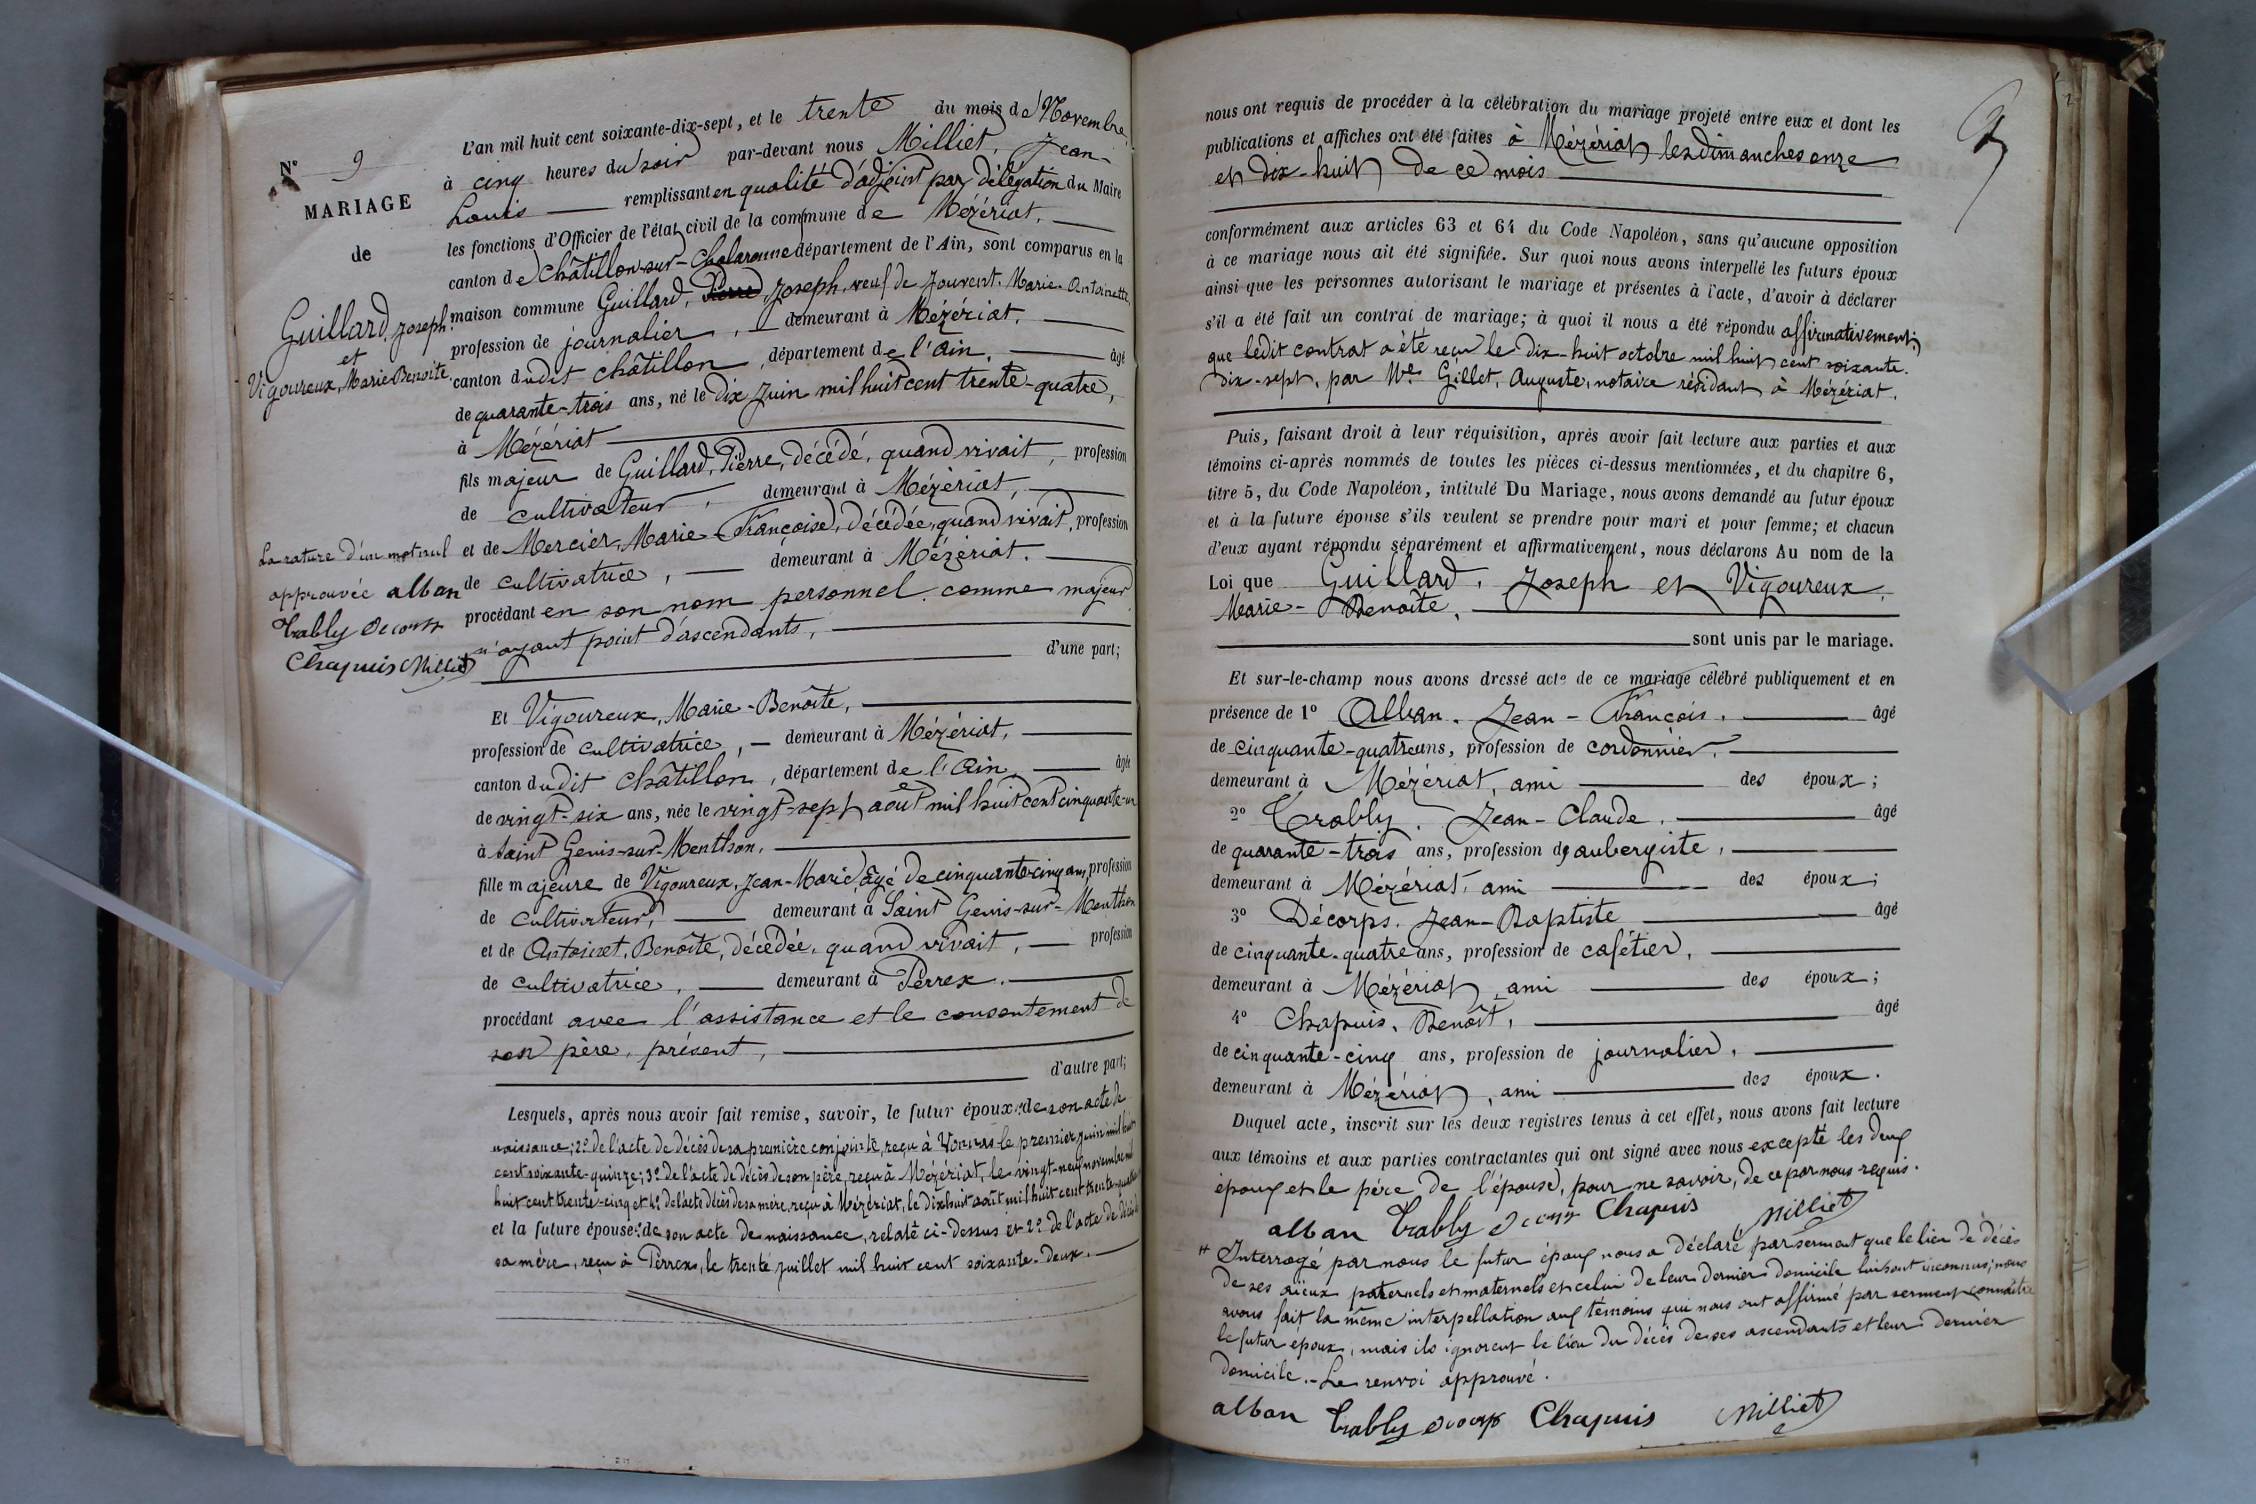 N° 9
MARIAGE
de
Guillard, Joseph
et
Vigoureux, Marie Benoîte.
La rature d'un mot nul
approuvée alban
Trably Decorps
Chapuis Milliet
L'an mil huit cent soixante-dix-sept, et le trente du mois de Novembre,
à cinq heures du soir par-devant nous Milliet, Jean-
Louis remplissant en qualité d'adjoint par délégation du Maire
les fonctions d'Officier de l'état civil de la commune de Mézériat,
canton de Châtillon-sur-Chalaronne département de l'Ain, sont comparus en la
maison commune Guillard, Pierre, Joseph, veuf de Jouvent, Marie-Antoinette,
profession de journalier, demeurant à Mézériat,
canton dudit Châtillon, département de l'Ain, âgé
de quarante-trois ans, né le dix Juin mil huit cent trente-quatre,
à Mézériat
fils majeur de Guillard, Pierre, décédé, quand vivait, profession
de cultivateur, demeurant à Mézériat,
et de Mercier, Marie-Françoise, décédée, quand vivait, profession
de cultivatrice, demeurant à Mézériat.
procédant en son nom personnel comme majeur
n'ayant point d'ascendants,
d'une part;
Et Vigoureux, Marie-Benoîte,
profession de cultivatrice, demeurant à Mézériat,
canton dudit Châtillon, département de l'Ain, âgée
de vingt-six ans, née le vingt-sept août mil huit cent cinquante-un
à Saint Genis-sur-Menthon,
fille majeure de Vigoureux, Jean-Marie, âgé de cinquante-cinq ans, profession
de cultivateur, demeurant à Saint Genis-sur-Menthon
et de Antoinet, Benoîte, décédée, quand vivait, profession
de cultivatrice, demeurant à Perrex.
procédant avec l'assistance et le consentement de
son père, présent,
d'autre part;
Lesquels, après nous avoir fait remise, savoir, le futur époux: de son acte de
naissance; 2° de l'acte de décès de sa première conjointe, reçu à Vonnas le premier juin mil huit
cent soixante-quinze; 3° de l'acte de décès de son père, reçu à Mézériat, le vingt-neuf novembre mil
huit cent trente-cinq et 4° de l'acte décès de sa mère, reçu à Mézériat, le dix huit août mil huit cent trente-quatre
et la future épouse: de son acte de naissance, relaté ci-dessus et 2° de l'acte de décès de
sa mère, reçu à Perrex, le trente juillet mil huit cent soixante-deux.
9
nous ont requis de procéder à la célébration du mariage projeté entre eux et dont les
publications et affiches ont été faites à Mézériat les dimanches onze
et dix-huit de ce mois
conformément aux articles 63 et 64 du Code Napoléon, sans qu'aucune opposition
à ce mariage nous ait été signifiée. Sur quoi nous avons interpellé les futurs époux
ainsi que les personnes autorisant le mariage et présentes à l'acte, d'avoir à déclarer
s'il a été fait un contrat de mariage; à quoi il nous a été répondu affirmativement;
que ledit contrat a été reçu le dix-huit octobre mil huit cent soixante-
dix-sept, par Me Gillet, Auguste, notaire résidant à Mézériat.
Puis, faisant droit à leur réquisition, après avoir fait lecture aux parties et aux
témoins ci-après nommés de toutes les pièces ci-dessus mentionnées, et du chapitre 6,
titre 5, du Code Napoléon, intitulé Du Mariage, nous avons demandé au futur époux
et à la future épouse s'ils veulent se prendre pour mari et pour femme; et chacun
d'eux ayant répondu séparément et affirmativement, nous déclarons Au nom de la
Loi que Guillard, Joseph et Vigoureux,
Marie-Benoîte,
sont unis par le mariage.
Et sur-le-champ nous avons dressé acte de ce mariage célébré publiquement et en
présence de 1° Alban, Jean-François, âgé
de cinquante-quatre ans, profession de cordonnier,
demeurant à Mézériat, ami des époux;
2° Trably, Jean-Claude, âgé
de quarante-trois ans, profession d'aubergiste,
demeurant à Mézériat, ami des époux;
3° Décorps, Jean-Baptiste âgé
de cinquante-quatre ans, profession de cafétier,
demeurant à Mézériat, ami des époux;
4° Chapuis, Benoît, âgé
de cinquante-cinq ans, profession de journalier,
demeurant à Mézériat, ami des époux.
Duquel acte, inscrit sur les deux registres tenus à cet effet, nous avons fait lecture
aux témoins et aux parties contractantes qui ont signé avec nous excepté les deux
époux et le père de l'épouse, pour ne savoir, de ce par nous requis.
alban Trably Decorps Chapuis Milliet
# Interrogé par nous le futur époux nous a déclaré par serment que le lieu de décès
de ses aïeux paternels et maternels et celui de leur dernier domicile lui sont inconnus; nous
avons fait la même interpellation aux témoins qui nous ont affirmé par serment connaître
le futur époux, mais ils ignorent le lieu du décès de ses ascendants et leur dernier
domicile. - Le renvoi approuvé.
alban Trably Decorps Chapuis Milliet